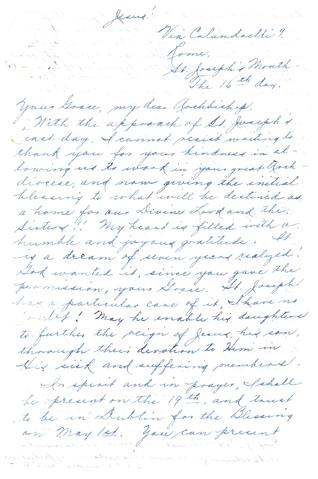 Jesus!
Via Calandrelli 9.
Rome.
St. Joseph's Month.
The 16th day.
Your Grace, my dear Archbishop,
With the approach of St Joseph's
east day, I cannot resist writing to
thank you for your kindness in al-
lowing us to work in your great Arch-
diocese, and now giving the initial
blessing to what will be destined as
a home for our Divine Lord and the
Sisters!! My heart is filled with a
humble and joyous gratitude. It
is a dream of seven years realized!
God wanted it, since you gave the
permission, your Grace. St. Joseph
has a particular care of it, I have no
doubt! May he enable his daughters
to further the reign of Jesus, his son,
through their devotion to Him in
His sick and suffering members.
In spirit and in prayer, I shall
be present on the 19th, and trust
to be in Dublin for the Blessing
on May 1st. You can present